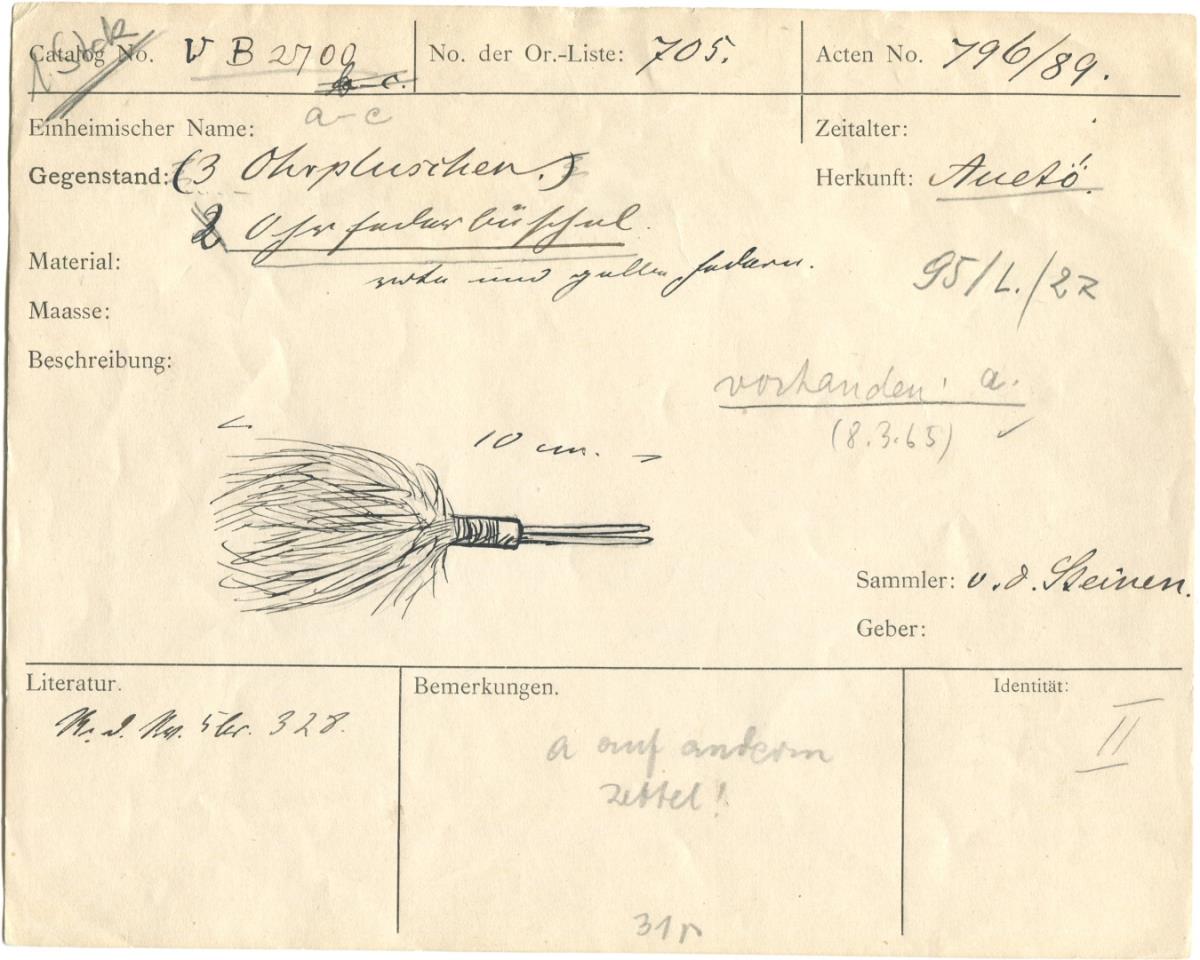 Catalog No. V B 2700
b-c.
a-c
No. der Or.-Liste: 705.
Acten No. 796/89.
Einheimischer Name:
Zeitalter:
Gegenstand: (3 Ohrpluschen.)
Herkunft: Auetö.
2 Ohrfederbüschel.
Material: rote und gelbe Federn.
95/L./22
Maasse:
Beschreibung:
vorhanden: a.
(8.3.65)
10 cm.
Sammler: v. d. Steinen.
Geber:
Literatur.
328.
Bemerkungen.
a auf anderm
Zettel!
31
Identität:
II